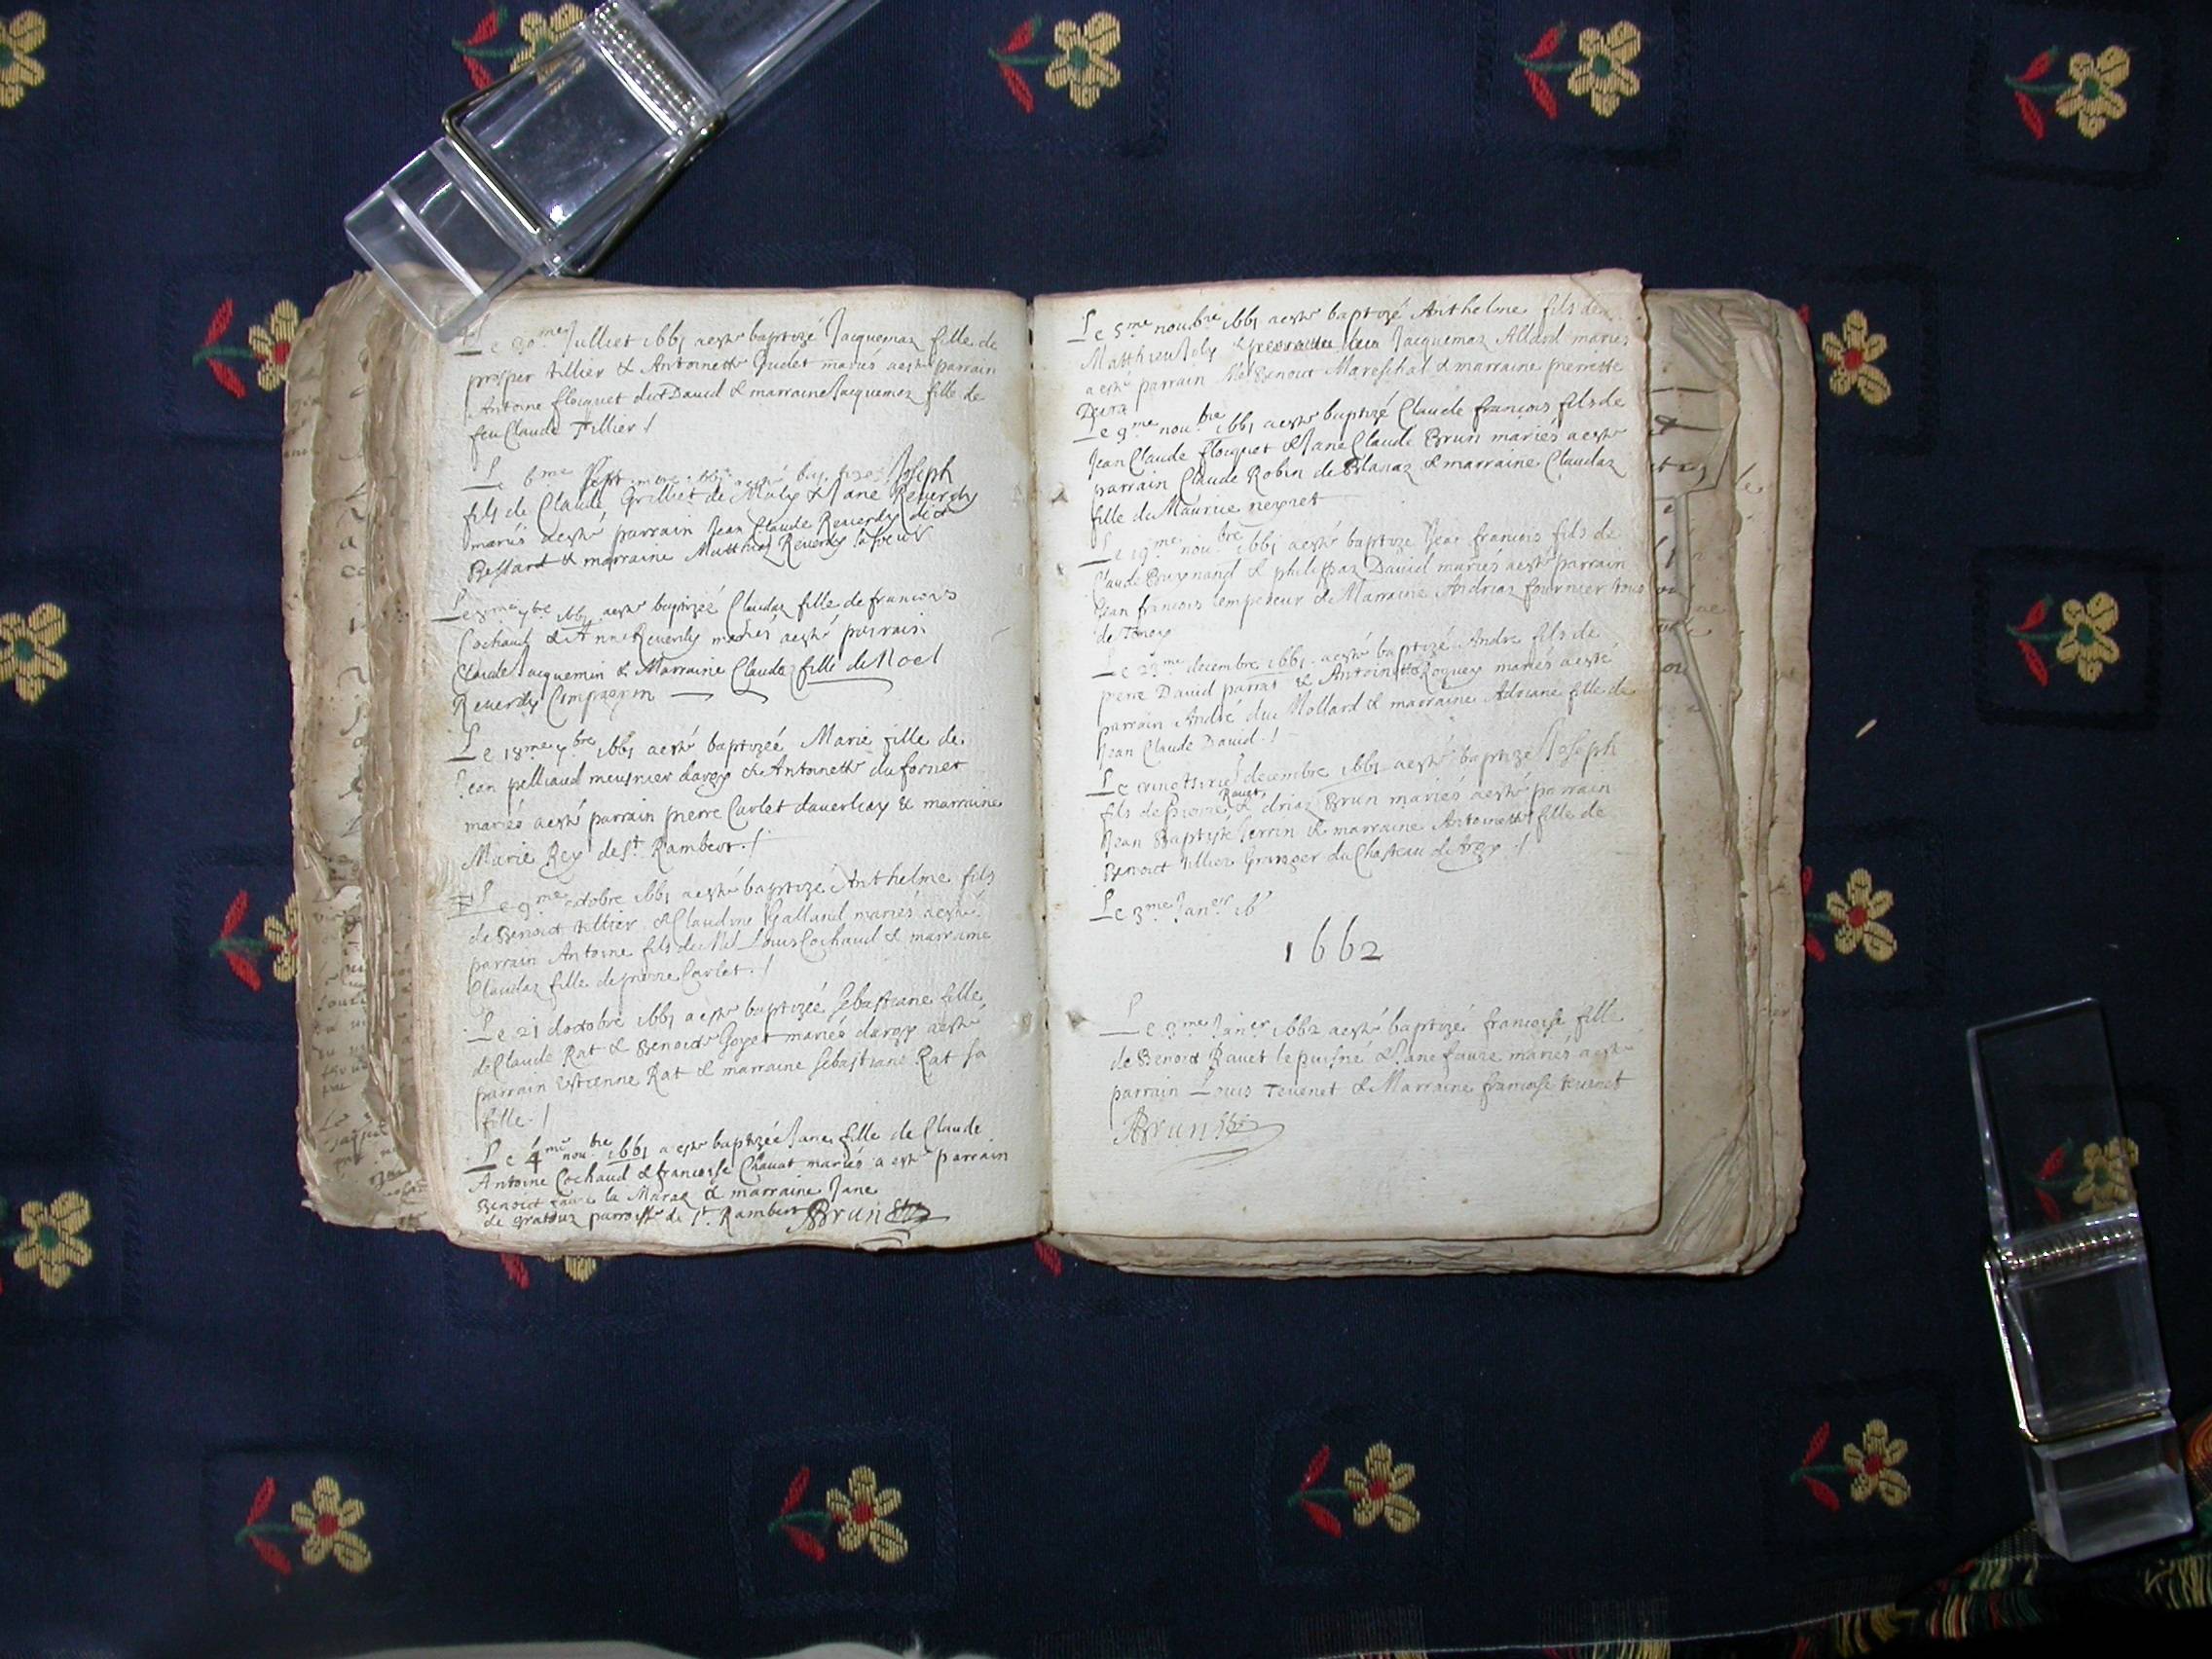 Le 30me Julliet 1661 aesté baptizé Jacquemaz fille de
prosper tillier & Antoinette Gudet mariés aesté parrain
Antoine flocquet dict David & marraine Jacquemaz fille de
feu Claude Tillier /
Le 6me Septembre 1661 aesté baptizé Joseph
fils de Claude Grilliet de & Jane Reverdy
mariés aesté parrain Jean Claude Reverdy dict
Bestard & marraine Matthiaz Reverdy sa soeur
Le 7bre 1661 aesté baptizeé Claudaz fille de francois
Cochaud & Anne Reverdy mariés aesté parrain
Claude Jacquemin & Marraine Claudaz fille de Noel
Reverdy
Le 18me 7bre 1661 aesté baptizeé Marie fille de
Jean pelliaud meusnier dargy & Antoinette du fornet
mariés aesté parrain pierre Carlet & marraine
Marie Rey de St Rambert ./
Le 9me octobre 1661 aesté baptizé Anthelme fils
de Benoict tillier & Claudine Galland mariés aesté
parrain Antoine fils de Louis Cochaud & marraine
Claudaz fille de pierre Carlet ./
Le 21 doctobre 1661 aesté baptizeé Sebastiane fille
de Claude Rat & Benoicte Goyet mariés dargy aesté
parrain Estienne Rat & marraine Sebastiane Rat sa
fille ./
Le 4me noubre 1661 aesté baptizée Jane fille de Claude
Antoine Cochaud & francoise Chavat mariés a esté parrain
Benoict la & marraine Jane
de parroisse de St Rambert Brun
Le 5me noubre 1661 aesté baptizé Anthelme fils de
Matthieu Joly & Jacquemaz Allard mariés
aesté parrain Benoict Mareschal & marraine pierrette
Le 9me noubre 1661 aesté baptizé Claude françois fils de
Jean Claude flocquet & Jane Claude Brun mariés aesté
parrain Claude Robin de Blanaz & marraine Claudaz
fille de Maurice neyret
Le 19me noubre 1661 aesté baptize Jean francois fils de
Claude & philippaz David mariés aesté parrain
Jean francois lempereur & Marraine Andriaz fournier tous
de
Le 23me decembre 1661 aesté baptizé André fils de
pierre David parrat & Antoinette mariés aesté
parrain André du Mollard & marraine Adriane fille de
Jean Claude David ./
Le decembre 1661 aesté baptizé Joseph
Ravet
fils de pierre & driaz Brun mariés aesté parrain
Jean Baptiste Serrin & marraine Antoinette fille de
Benoict tillier Granger du Chasteau de Argy ./
Le 3me Janer 16
1662
Le 3me Janer 1662 aesté baptizé francoise fille
de Benoict Ravet le puisné & Jane faure mariés aesté
parrain Louis Tevenet & Marraine francoise tevenet
Brun